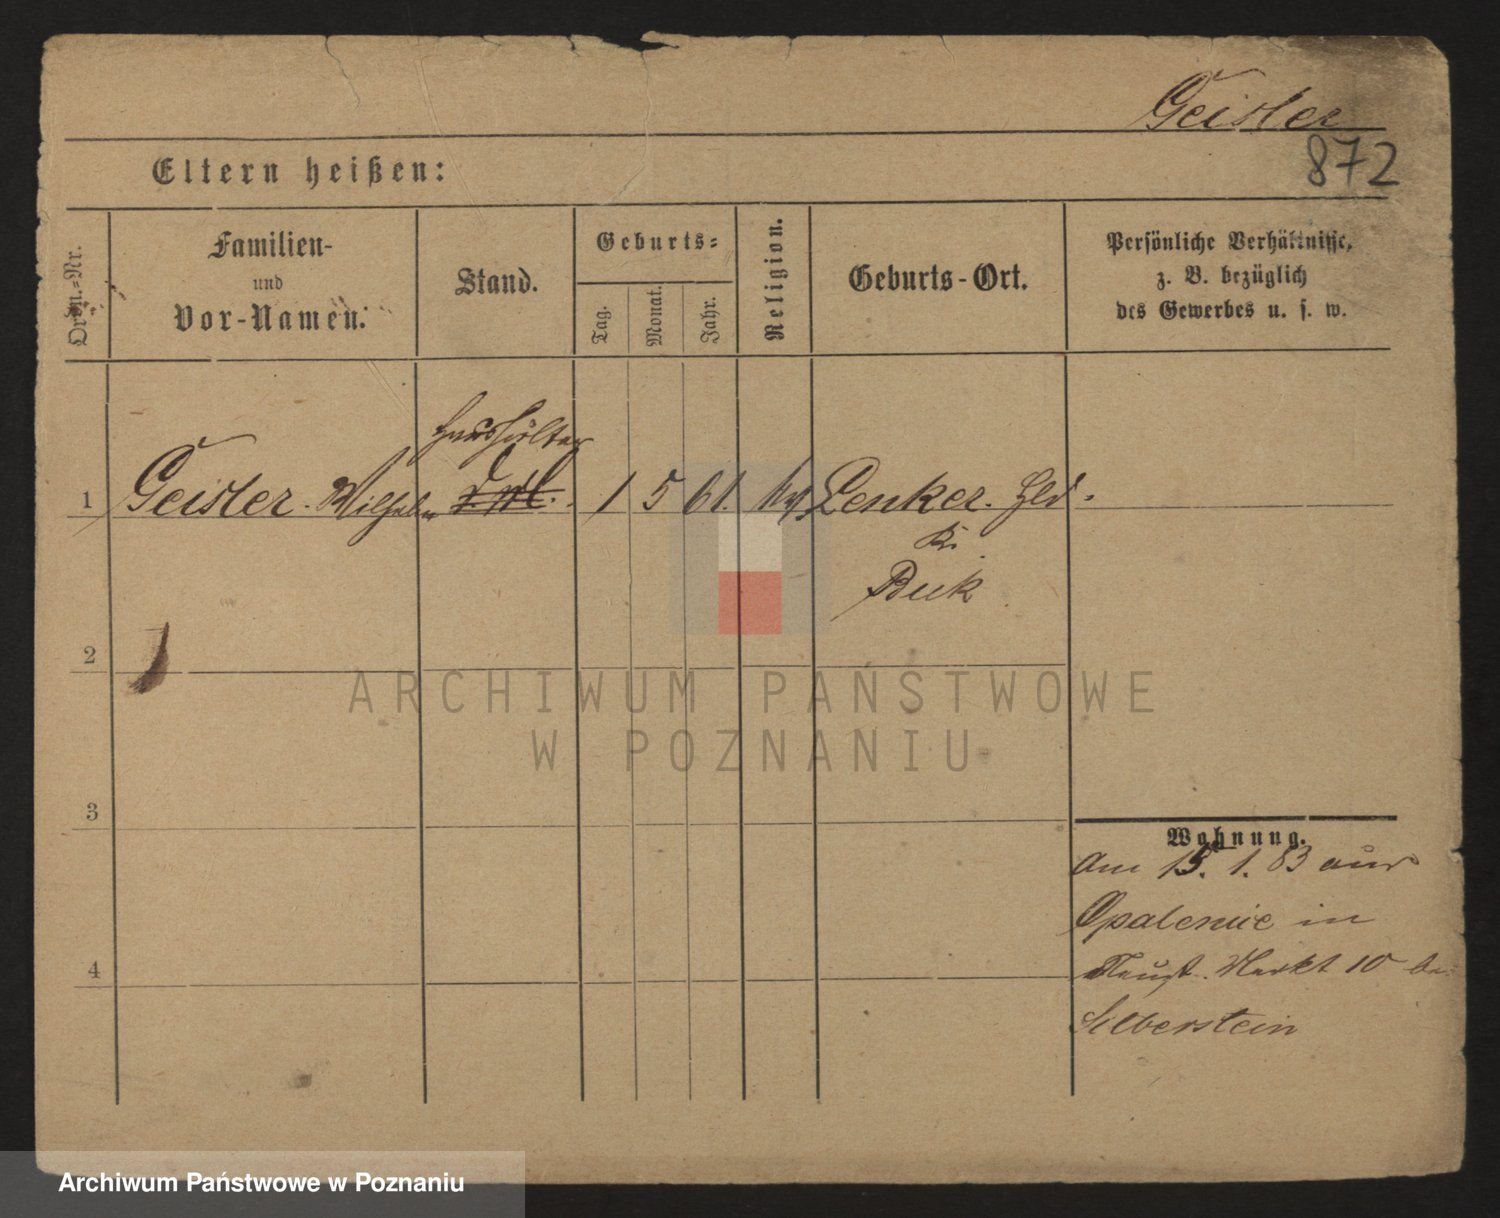 Geisler
872
Eltern heißen:
Ordn.-Nr.
Familien-
und
Vor-Namen.
Stand.
Geburts-
Tag.
Monat.
Jahr.
Religion.
Geburts-Ort.
Persönliche Verhältnisse,
z. B. bezüglich
des Gewerbes u. s. w.
Haushälter
1 Geisler. Wilhelm 1 5 61. Lenker. Hld.
Kr.
Buk
2
3
4
Wohnung.
Am 15. 1. 83 aus
Opalenica in
Neust. Markt 10 bei
Silberstein
ARCHIWUM PAŃSTWOWE
W POZNANIU
Archiwum Państwowe w Poznaniu